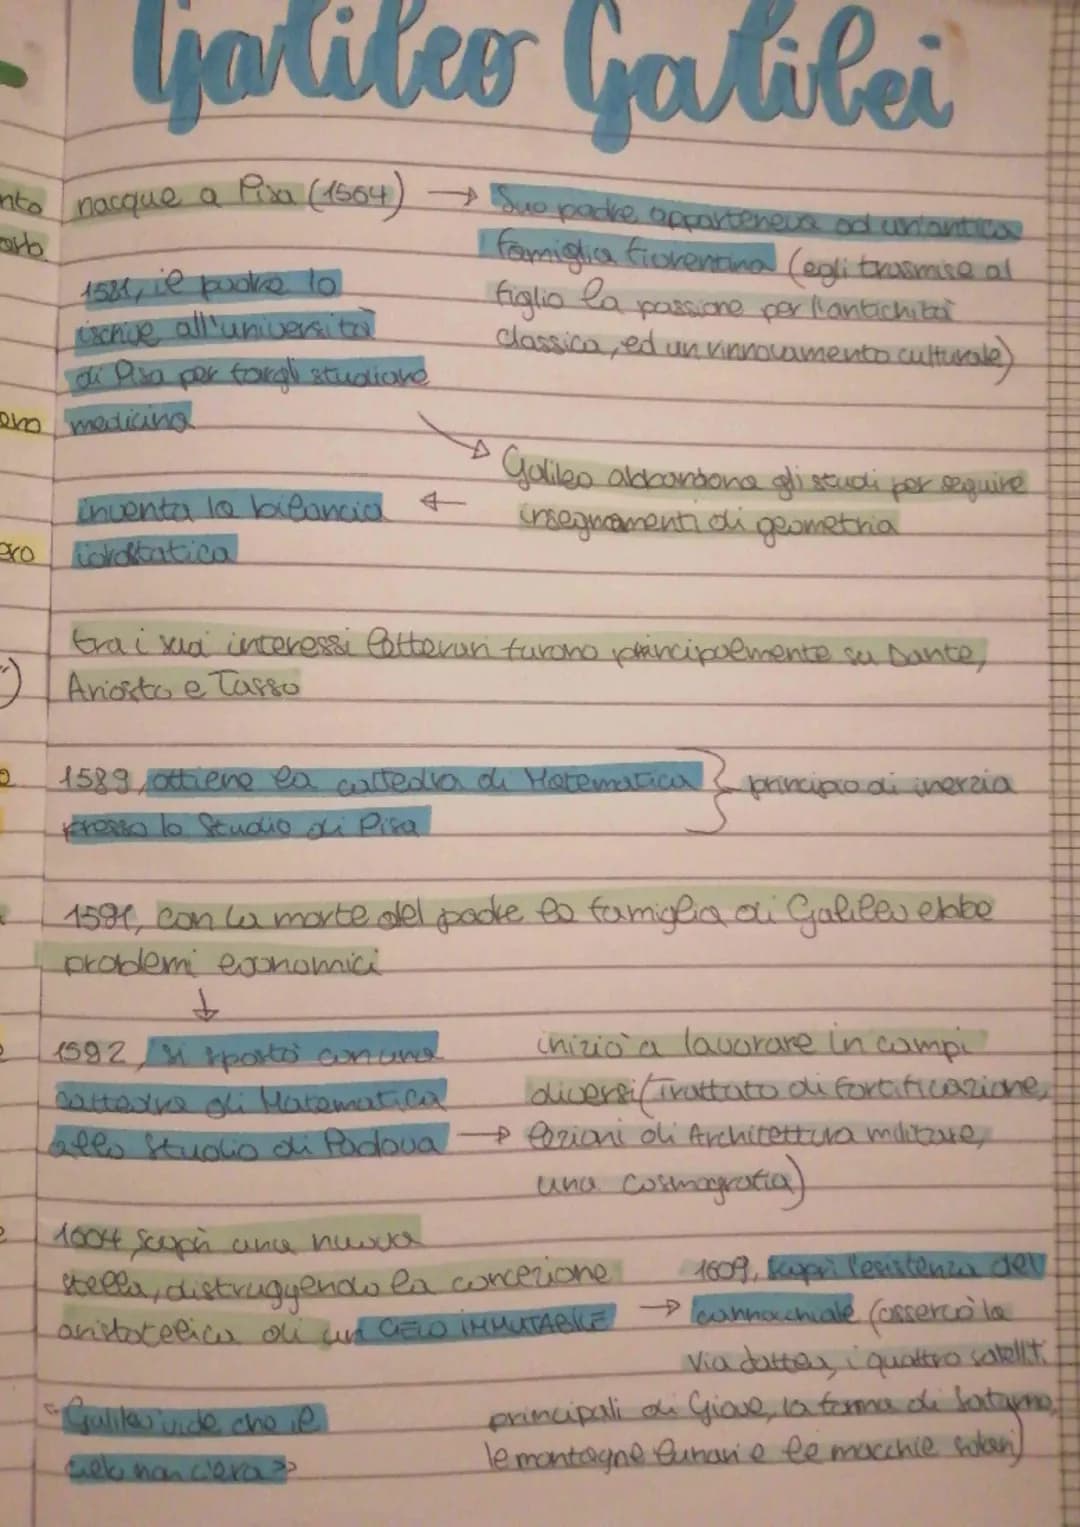 Galileo Galilei
nacque a Pisa (1564) → Suo padre apparteneva ad un'antica
famiglia fiorentina (egli trasmise al
figlio la passione per l'antichità
classica, ed un rinnovamento culturale)
1581, il padre lo
iscrive all'università
di Pisa per fargli studiare
medicina
Galileo abbandona gli studi per seguire
insegnamenti di geometria
inventa la bilancia
idrostatica
tra i suoi interessi letterari furono principalmente su Dante,
Ariosto e Tasso
1589, ottiene la cattedra di Matematica
presso lo Studio di Pisa
principio di inerzia
1591, con la morte del padre la famiglia di Galileo ebbe
problemi economici
↓
1592, si spostò con una
cattedra di Matematica
allo Studio di Padova →
iniziò a lavorare in campi
diversi (Trattato di fortificazione,
lezioni di Architettura militare,
una cosmografia)
1604 scoprì una nuova
stella, distruggendo la concezione
aristotelica di un CIELO IMMUTABILE →
1609, scoprì l'esistenza del
cannocchiale (osservò la
via lattea, i quattro satelliti
principali di Giove, la forma di Saturno,
le montagne lunari e le macchie solari)
"Galileo vide che il
cielo non c'era>>
nto
ero